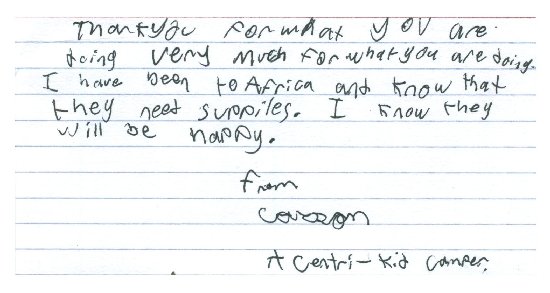 Thankyou for what you are
doing very much for what you are doing.
I have been to Africa and know that
they need suppiles. I know they
will be happy.
from
A Centri-Kid camper.